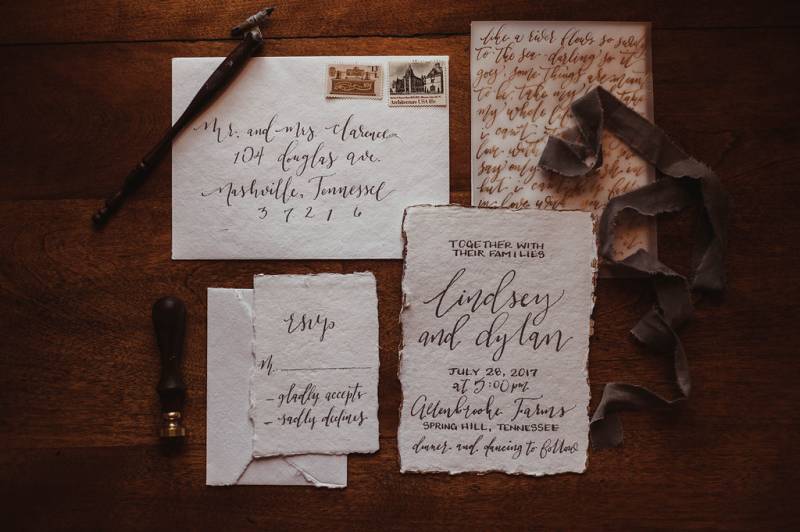 Mr. and Mrs. Clarence
104 douglas ave.
Nashville, Tennessee
3 7 2 1 6
Architecture USA 18c
like a river flows so surely
to the sea darling so it
goes some things are meant
to be take my take
my whole
can't
say only
but i can't
in love
TOGETHER WITH
THEIR FAMILIES
lindsey
and dylan
JULY 28, 2017
at 5:00 pm
Allenbrooke Farms
SPRING HILL, TENNESSEE
dinner and dancing to follow
rsvp
M.
– gladly accepts
– sadly declines